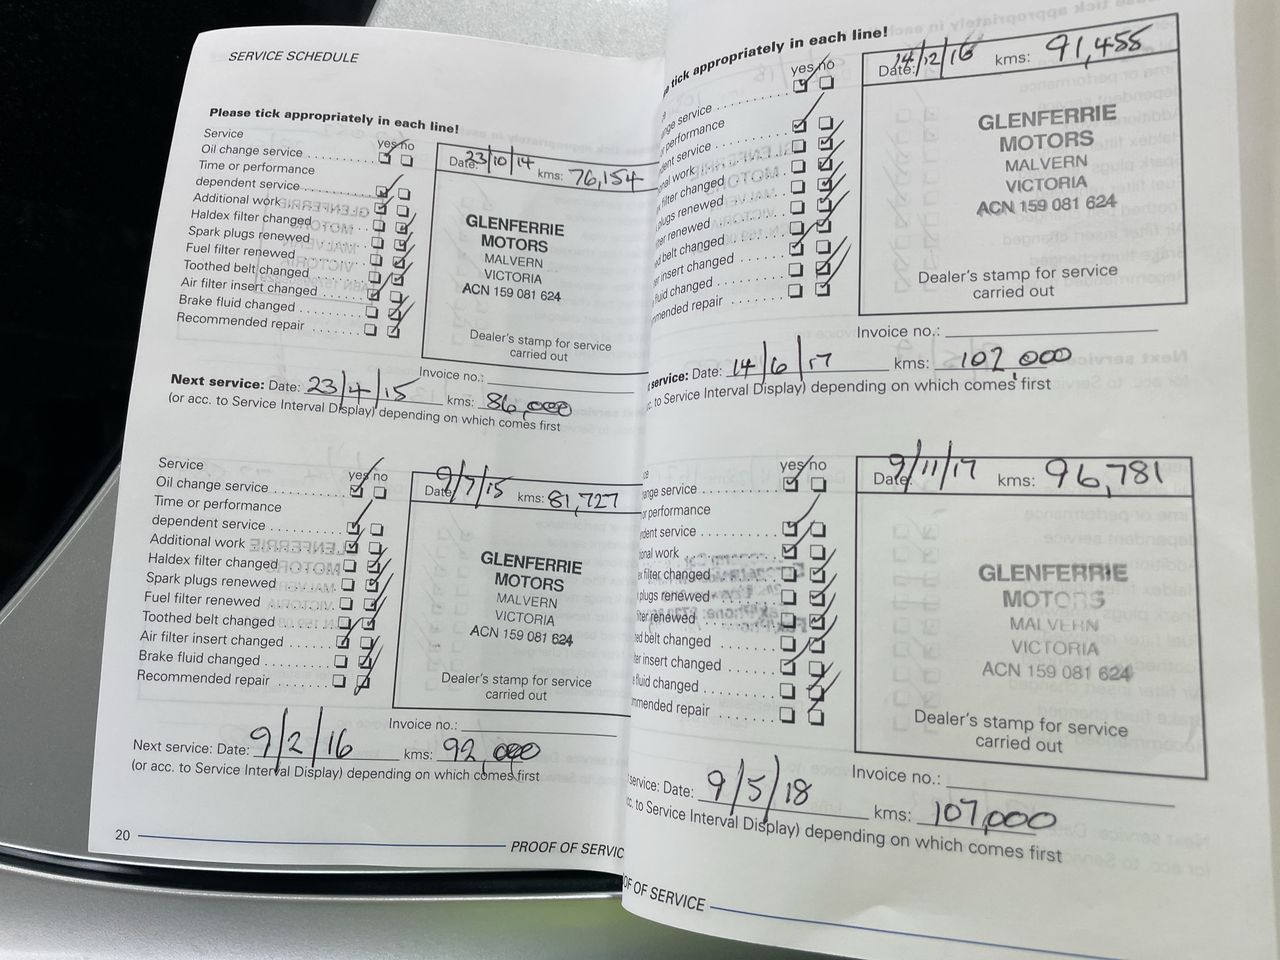 SERVICE SCHEDULE
Please tick appropriately in each line!
Service
yes no
Oil change service
Time or performance
dependent service
Additional work
Haldex filter changed
Spark plugs renewed
Fuel filter renewed
Toothed belt changed
Air filter insert changed
Brake fluid changed
Recommended repair
Date: 23/10/14 kms: 76,154
GLENFERRIE
MOTORS
MALVERN
VICTORIA
ACN 159 081 624
Dealer's stamp for service
carried out
Invoice no.:
Next service: Date: 23/4/15 kms: 86,000
(or acc. to Service Interval Display) depending on which comes first
Service
yes no
Oil change service
Time or performance
dependent service
Additional work
Haldex filter changed
Spark plugs renewed
Fuel filter renewed
Toothed belt changed
Air filter insert changed
Brake fluid changed
Recommended repair
Date: 9/7/15 kms: 81,727
GLENFERRIE
MOTORS
MALVERN
VICTORIA
ACN 159 081 624
Dealer's stamp for service
carried out
Invoice no.:
Next service: Date: 9/2/16 kms: 92,000
(or acc. to Service Interval Display) depending on which comes first
20
PROOF OF SERVIC
tick appropriately in each line!
yes no
nge service
r performance
dent service
nal work
filter changed
plugs renewed
ter renewed
d belt changed
insert changed
fluid changed
mmended repair
Date: 14/12/16 kms: 91,455
GLENFERRIE
MOTORS
MALVERN
VICTORIA
ACN 159 081 624
Dealer's stamp for service
carried out
Invoice no.:
service: Date: 14/6/17 kms: 102,000
c. to Service Interval Display) depending on which comes first
ce
yes no
nge service
or performance
ndent service
onal work
filter changed
plugs renewed
lter renewed
ed belt changed
ter insert changed
fluid changed
mmended repair
Date: 9/11/17 kms: 96,781
GLENFERRIE
MOTORS
MALVERN
VICTORIA
ACN 159 081 624
Dealer's stamp for service
carried out
Invoice no.:
service: Date: 9/5/18 kms: 107,000
cc. to Service Interval Display) depending on which comes first
OF OF SERVICE